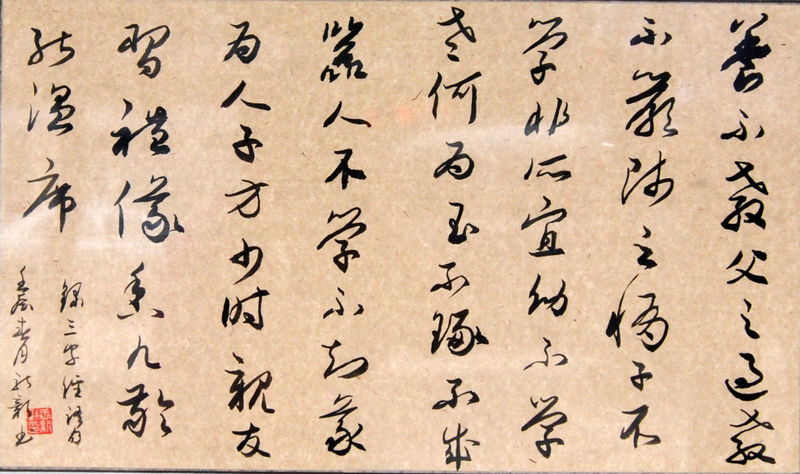 養不教父之過教
不嚴師之惰子不
学非所宜幼不学
老何为玉不琢不成
器人不学不知義
为人子方少时親友
習禮儀香九齡
能温席
録三字經
壬辰春月